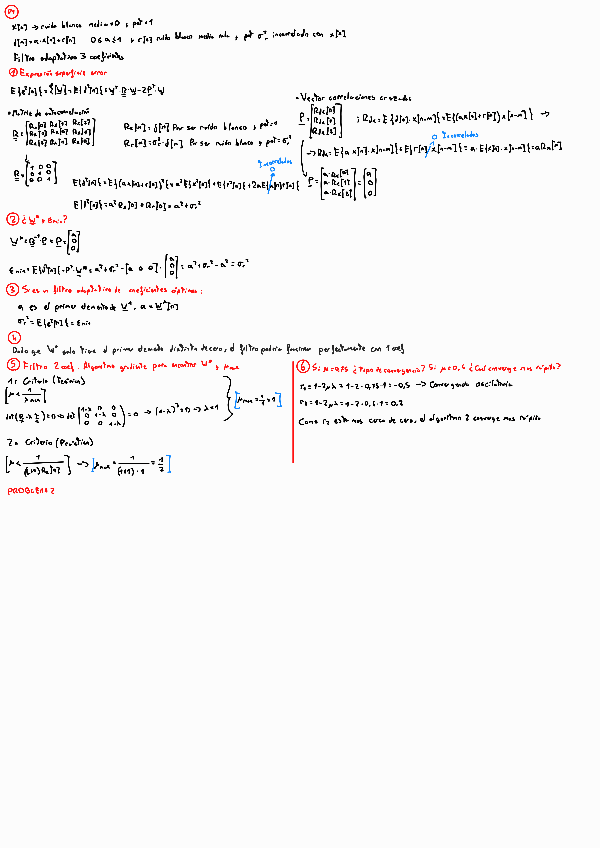 P1
x[n] → ruido blanco media=0 y pot=1
d[n]=a·x[n]+r[n]   0≤a≤1 y r[n] ruido blanco media nula y pot σr² incorrelado con x[n]
Filtro adaptativo 3 coeficientes
① Expresión superficie error
E{e²[n]}=ξ[W]=E{d²[n]}+Wᵀ·R·W-2Pᵀ·W
• Matriz de autocorrelación
Rx[n]=δ[n] Por ser ruido blanco y pot=1
Rr[n]=σr²·δ[n] Por ser ruido blanco y pot=σr²
R=[1 0 0; 0 1 0; 0 0 1]
E{d²[n]}=E{(ax[n]+r[n])²}=a²E{x²[n]}+E{r²[n]}+2aE{x[n]r[n]}
Incorrelados
0
E{d²[n]}=a²Rx[0]+Rr[0]=a²+σr²
• Vector correlaciones cruzadas
P=[Rdx[0]; Rdx[1]; Rdx[2]] ; Rdx=E{d[n]·x[n-m]}=E{(a·x[n]+r[n])x[n-m]} →
0 Incorrelados
→ Rdx=E{a x[n]·x[n-m]}+E{r[n]·x[n-m]}=a·E{x[n]·x[n-m]}=aRx[m]
P=[a·Rx[0]; a·Rx[1]; a·Rx[2]]=[a; 0; 0]
② ¿W* y εmin?
W*=R⁻¹·P=P=[a; 0; 0]
εmin=E{d²[n]}-Pᵀ·W*=a²+σr²-[a 0 0]·[a; 0; 0]=a²+σr²-a²=σr²
③ Si es un filtro adaptativo de coeficientes óptimos:
a es el primer elemento de W*, a=W*[n]
σr²=E{e²[n]}=εmin
④
Dado que W* solo tiene el primer elemento distinto de cero, el filtro podría funcionar perfectamente con 1 coef
⑤ Filtro 2 coef. Algoritmo gradiente para encontrar W* y μmax
1º Criterio (Teórico)
[μ<1/λmax]
det(R-λI)=0 → det(1-λ 0 0; 0 1-λ 0; 0 0 1-λ)=0 → (1-λ)³=0 → λ=1
[μmax=1/1=1]
2º Criterio (Práctico)
→ [μmax=1/((1+1)·1)=1/2]
⑥ Si μ=0,75 ¿Tipo de convergencia? Si μ=0,4 ¿Cuál converge mas rápido?
r1=1-2μλ=1-2·0,75·1=-0,5 → Convergencia oscilatoria
r2=1-2μλ=1-2·0,4·1=0,2
Como r2 está mas cerca de cero, el algoritmo 2 converge mas rápido
PROBLEMA 2